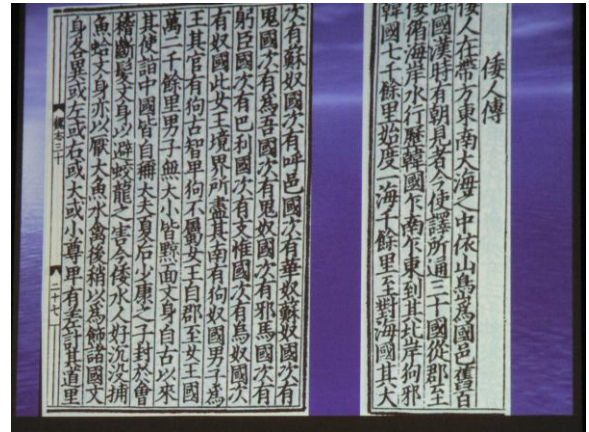 倭人傳
倭人在帶方東南大海之中依山㠀為國邑舊百
餘國漢時有朝見者今使譯所通三十國從郡至
倭循海岸水行歷韓國乍南乍東到其北岸狗邪
韓國七千餘里始度一海千餘里至對海國其大
次有蘇奴國次有呼邑國次有華奴蘇奴國次有
鬼國次有為吾國次有鬼奴國次有邪馬國次有
躬臣國次有巴利國次有支惟國次有烏奴國次
有奴國此女王境界所盡其南有狗奴國男子為
王其官有狗古智卑狗不屬女王自郡至女王國
萬二千餘里男子無大小皆黥面文身自古以來
其使詣中國皆自稱大夫夏后少康之子封於會
稽斷髮文身以避蛟龍之害今倭水人好沉没捕
魚蛤文身亦以厭大魚水禽後稍以為飾諸國文
身各異或左或右或大或小尊卑有差計其道里
魏志三十
二十七